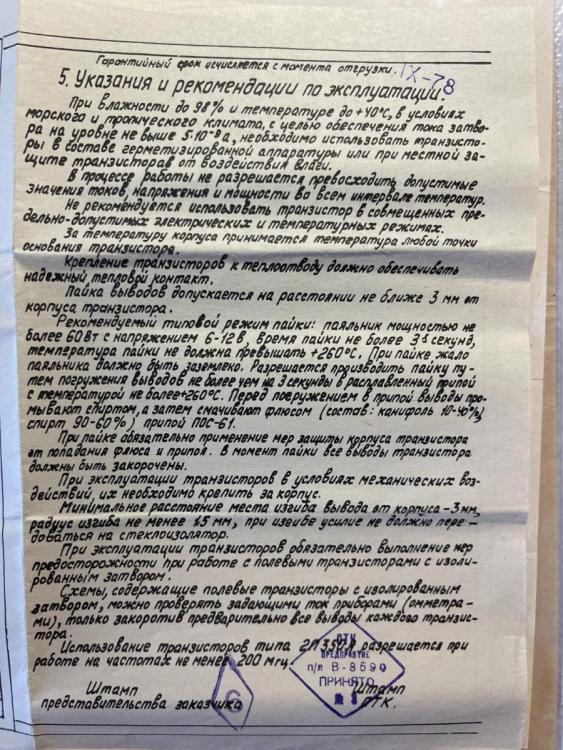 Гарантийный срок исчисляется с момента отгрузки. IX-78
5. Указания и рекомендации по эксплуатации.
При влажности до 98% и температуре до +40°С, в условиях
морского и тропического климата, с целью обеспечения тока затво-
ра на уровне не выше 5·10⁻⁹а, необходимо использовать транзисто-
ры в составе герметизированной аппаратуры или при местной за-
щите транзисторов от воздействия влаги.
В процессе работы не разрешается превосходить допустимые
значения токов, напряжения и мощности во всем интервале температур.
Не рекомендуется использовать транзистор в совмещенных пре-
дельно-допустимых электрических и температурных режимах.
За температуру корпуса принимается температура любой точки
основания транзистора.
Крепление транзисторов к теплоотводу должно обеспечивать
надежный тепловой контакт.
Пайка выводов допускается на расстоянии не ближе 3 мм от
корпуса транзистора.
Рекомендуемый типовой режим пайки: паяльник мощностью не
более 60 Вт с напряжением 6-12 в, время пайки не более 3 секунд,
температура пайки не должна превышать +260°С. При пайке жало
паяльника должно быть заземлено. Разрешается производить пайку пу-
тем погружения выводов не более чем на 3 секунды в расплавленный припой
с температурой не более +260°С. Перед погружением в припой выводы про-
мывают спиртом, а затем смачивают флюсом (состав: канифоль 10-40%,
спирт 90-60%) припой ПОС-61.
При пайке обязательно применение мер защиты корпуса транзистора
от попадания флюса и припоя. В момент пайки все выводы транзистора
должны быть закорочены.
При эксплуатации транзисторов в условиях механических воз-
действий, их необходимо крепить за корпус.
Минимальное расстояние места изгиба вывода от корпуса - 3 мм,
радиус изгиба не менее 1.5 мм, при изгибе усилие не должно пере-
даваться на стеклоизолятор.
При эксплуатации транзисторов обязательно выполнение мер
предосторожности при работе с полевыми транзисторами с изоли-
рованным затвором.
Схемы, содержащие полевые транзисторы с изолированным
затвором, можно проверять задающими ток приборами (омметра-
ми), только закоротив предварительно все выводы каждого транзис-
тора.
Использование транзисторов типа 2П350А разрешается при
работе на частотах не менее 200 мгц.
ОТК
ПРЕДПРИЯТИЕ
п/я В-8590
ПРИНЯТО
№ 3
6
Штамп
представителя заказчика
Штамп
ОТК.